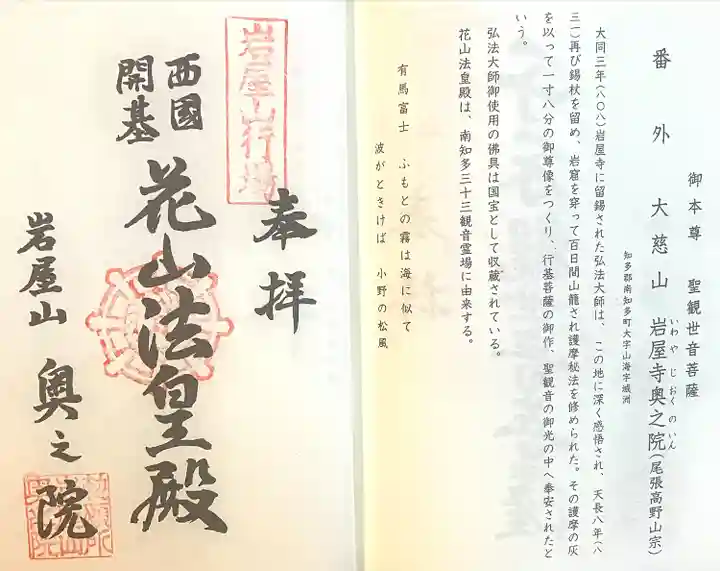 番外 大慈山 岩屋寺奥之院(尾張高野山宗)
いわやじおくのいん
御本尊 聖観世音菩薩
知多郡南知多町大字山海字城洲
大同三年(八〇八)岩屋寺に留錫された弘法大師は、この地に深く感悟され、天長八年(八
三一)再び錫杖を留め、岩窟を穿って百日間山籠され護摩秘法を修められた。その護摩の灰
を以って一寸八分の御尊像をつくり、行基菩薩の御作、聖観音の御光の中へ奉安されたと
いう。
弘法大師御使用の佛具は国宝として収蔵されている。
花山法皇殿は、南知多三十三観音霊場に由来する。
有馬富士 ふもとの霧は海に似て
波がときけば 小野の松風
岩屋山行場
奉拝
西國
開基
花山法皇殿
岩屋山 奥之院